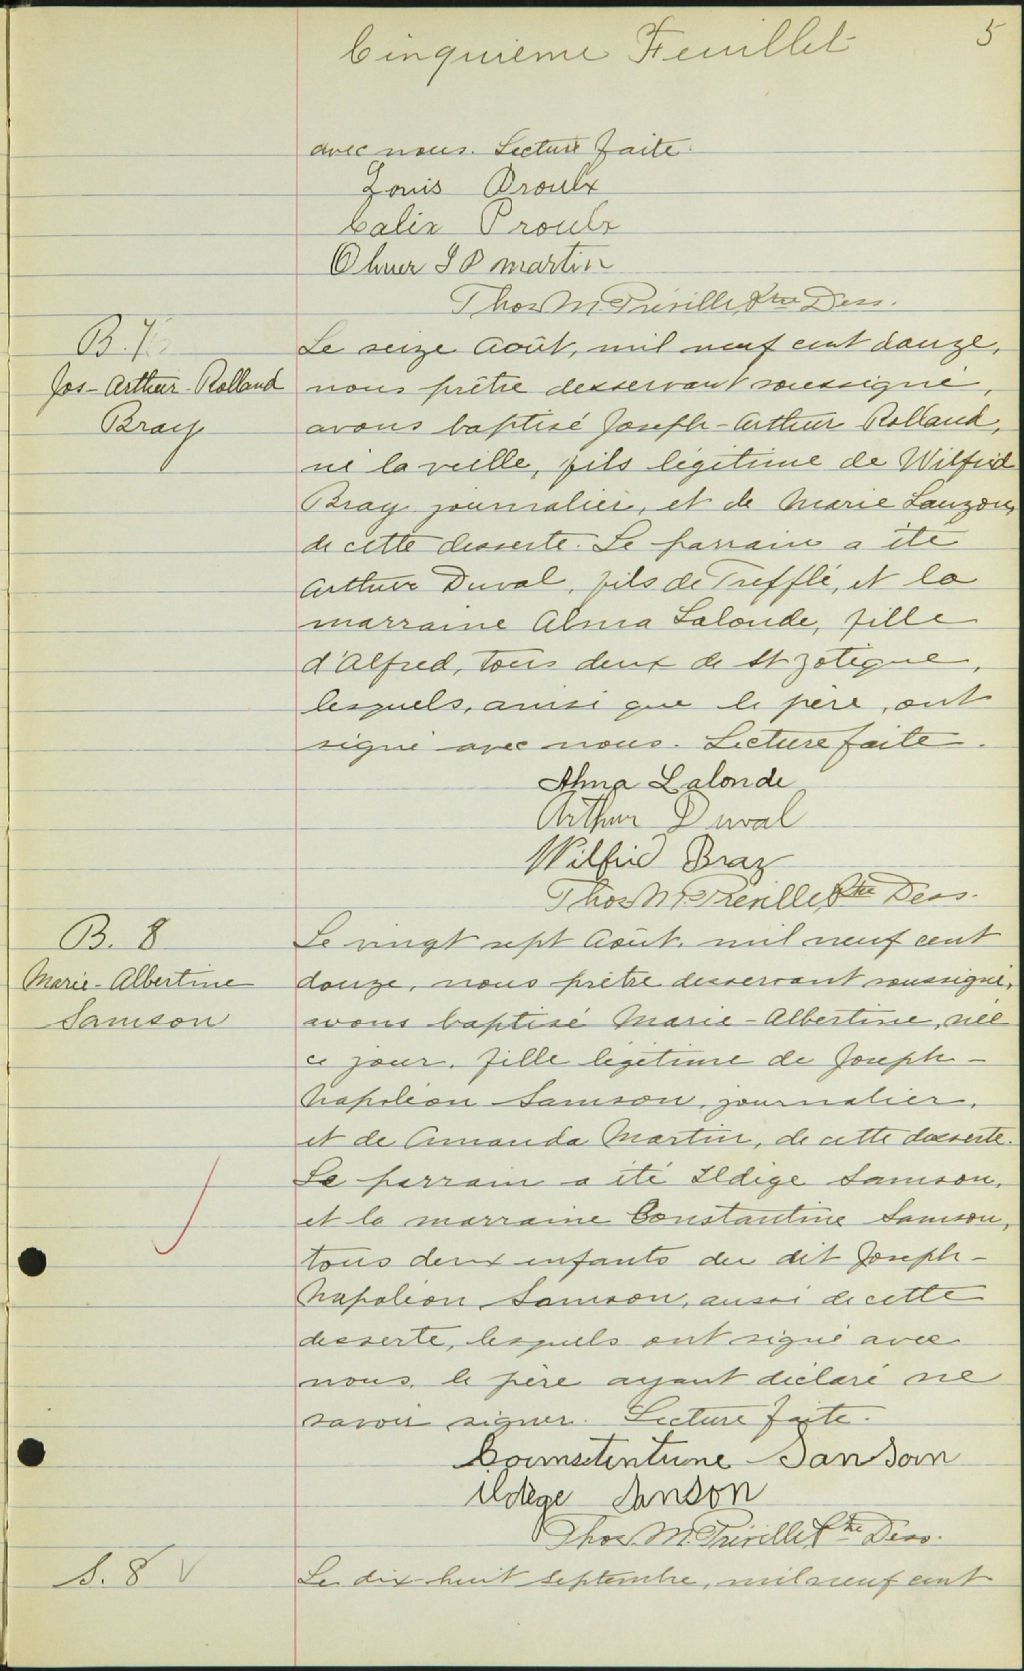 Cinquieme Feuillet
5
avec nous. Lecture faite.
Louis Proulx
Calix Proulx
Thos M. Préville, Ptre Dess.
B. 7
Jos-Arthur-Rolland
Bray
Le seize Août, mil neuf cent douze,
nous prêtre desservant soussigné,
avons baptisé Joseph-Arthur Rolland,
né la veille, fils légitime de Wilfrid
Bray journalier, et de Marie Lauzon,
de cette desserte. Le parrain a été
Arthur Duval, fils de Trefflé, et la
marraine Alma Lalonde, fille
d'Alfred, tous deux de St Zotique,
lesquels, ainsi que le père, ont
signé avec nous. Lecture faite.
Alma Lalonde
Arthur Duval
Wilfrid Bray
Thos M. Préville, Ptre Dess.
B. 8
Marie-Albertine
Samson
Le vingt sept Août, mil neuf cent
douze, nous prêtre desservant soussigné,
avons baptisé Marie-Albertine, née
ce jour, fille légitime de Joseph-
Napoléon Samson, journalier,
et de Amanda Martin, de cette desserte.
Le parrain a été Ildège Samson,
et la marraine Constantine Samson,
tous deux enfants du dit Joseph-
Napoléon Samson, aussi de cette
desserte, lesquels ont signé avec
nous, le père ayant déclaré ne
savoir signer. Lecture faite.
SanSon
ildège SanSon
Thos. M. Préville, Ptre Dess.
S. 8
Le dix-huit septembre, mil neuf cent